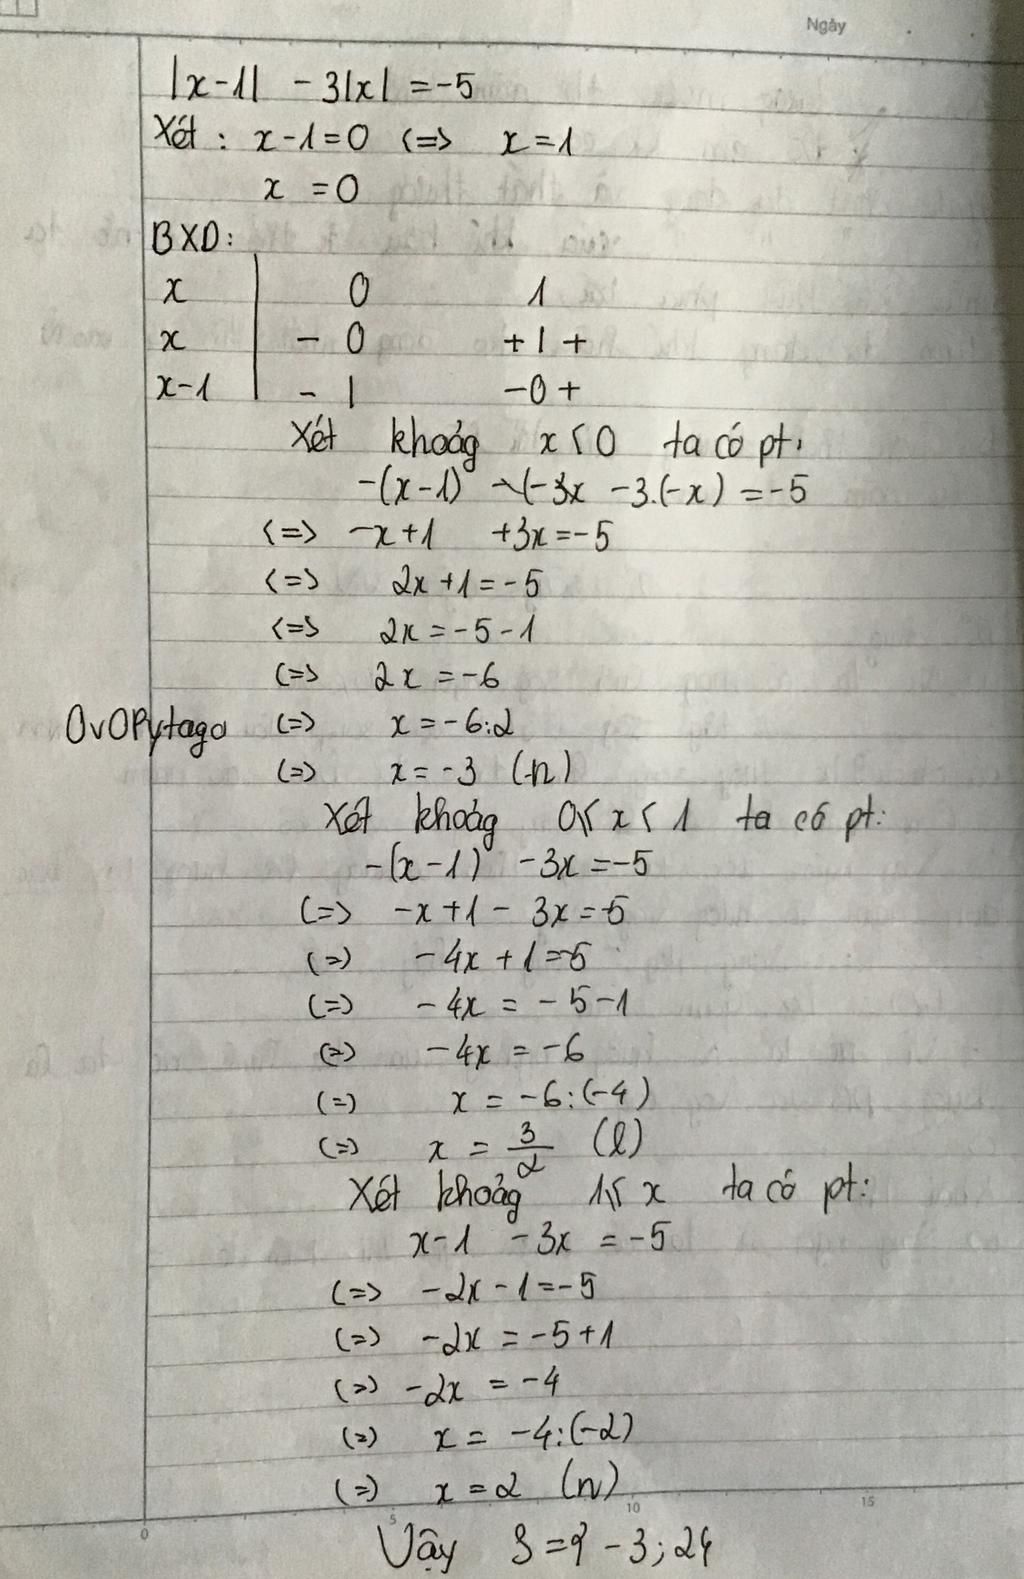 Ngày
|x-1| - 3|x| = -5
Xét : x-1=0 <=> x=1
x = 0
BXD:
x 0 1
x - 0 + | +
x-1 - | - 0 +
Xét khoảg x < 0 ta có pt:
-(x-1) - 3.(-x) = -5
<=> -x+1 +3x = -5
<=> 2x+1 = -5
<=> 2x = -5-1
<=> 2x = -6
OvOPytago <=> x = -6:2
<=> x = -3 (n)
Xét khoảg 0 ≤ x < 1 ta có pt:
-(x-1) -3x = -5
<=> -x+1 - 3x = -5
<=> -4x + 1 = -5
<=> -4x = -5-1
<=> -4x = -6
<=> x = -6:(-4)
<=> x = 3/2 (l)
Xét khoảg 1 ≤ x ta có pt:
x-1 -3x = -5
<=> -2x - 1 = -5
<=> -2x = -5+1
<=> -2x = -4
<=> x = -4:(-2)
<=> x = 2 (n)
0 5 10 15
Vậy S = {-3; 2}